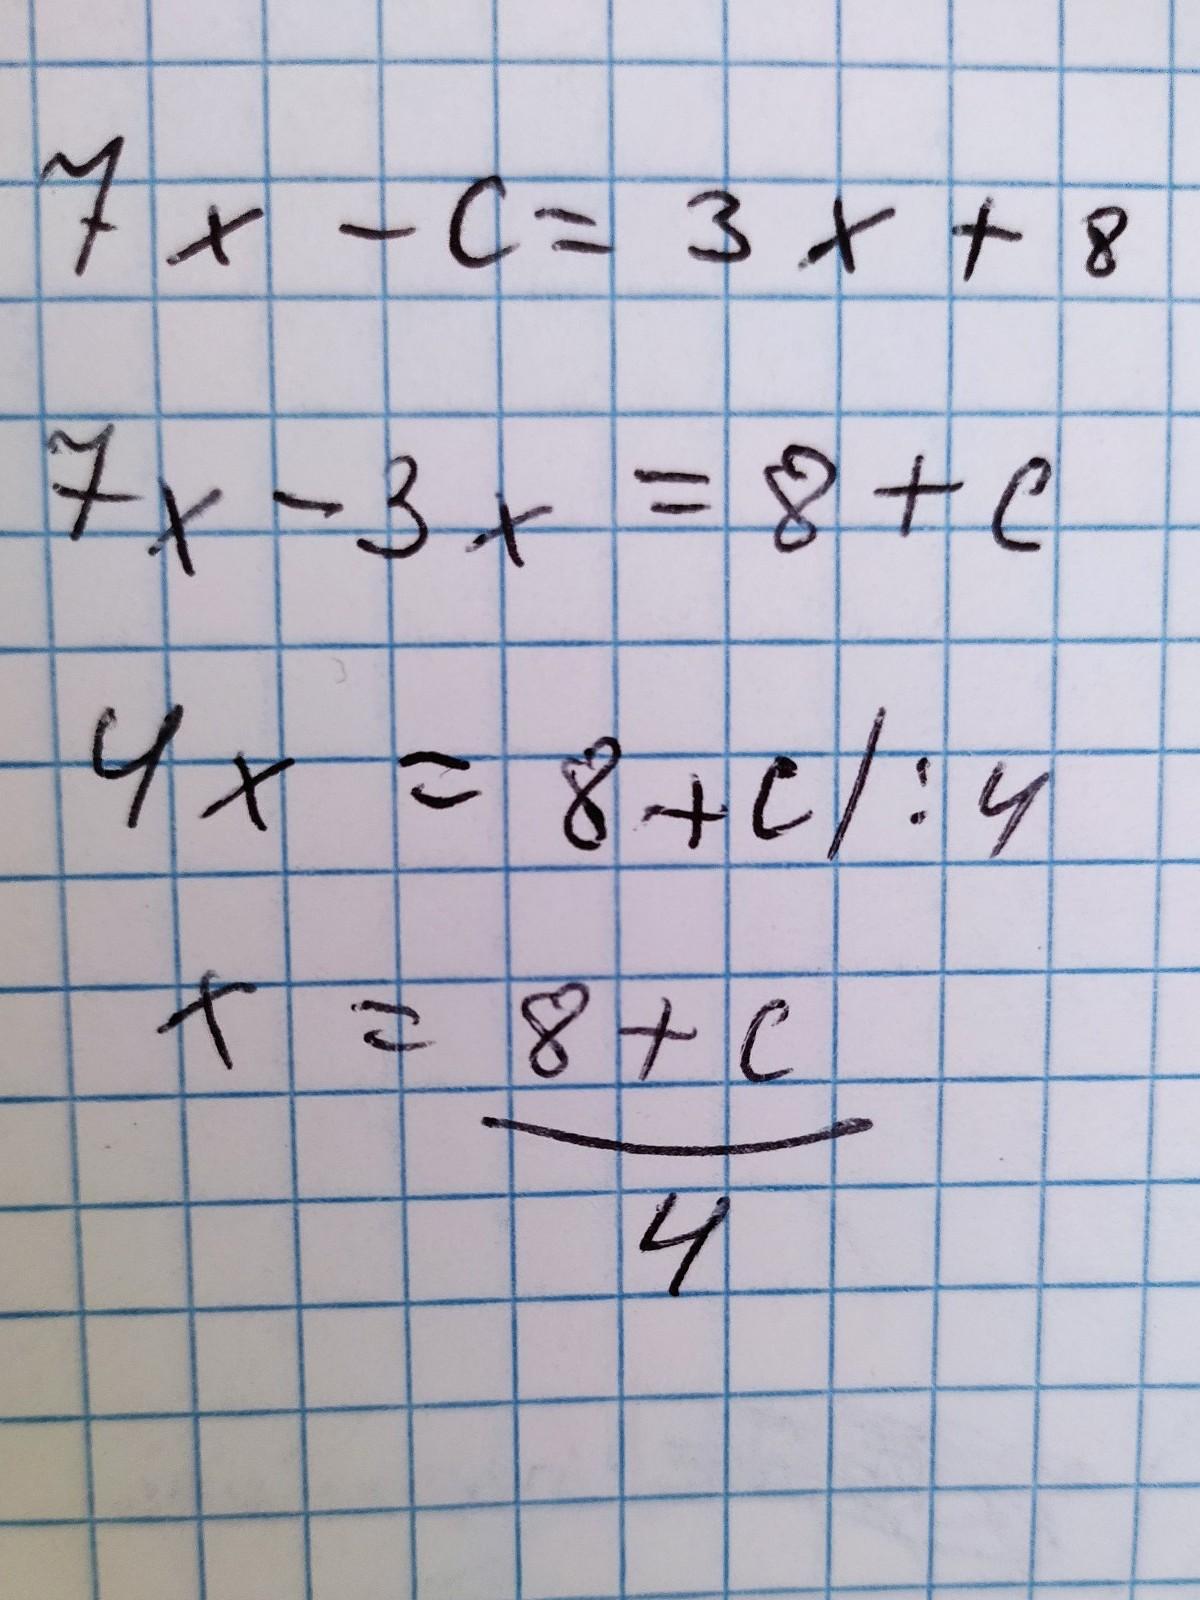 7x - C = 3x + 8
7x - 3x = 8 + C
4x = 8 + C / : 4
x = 8 + C
4